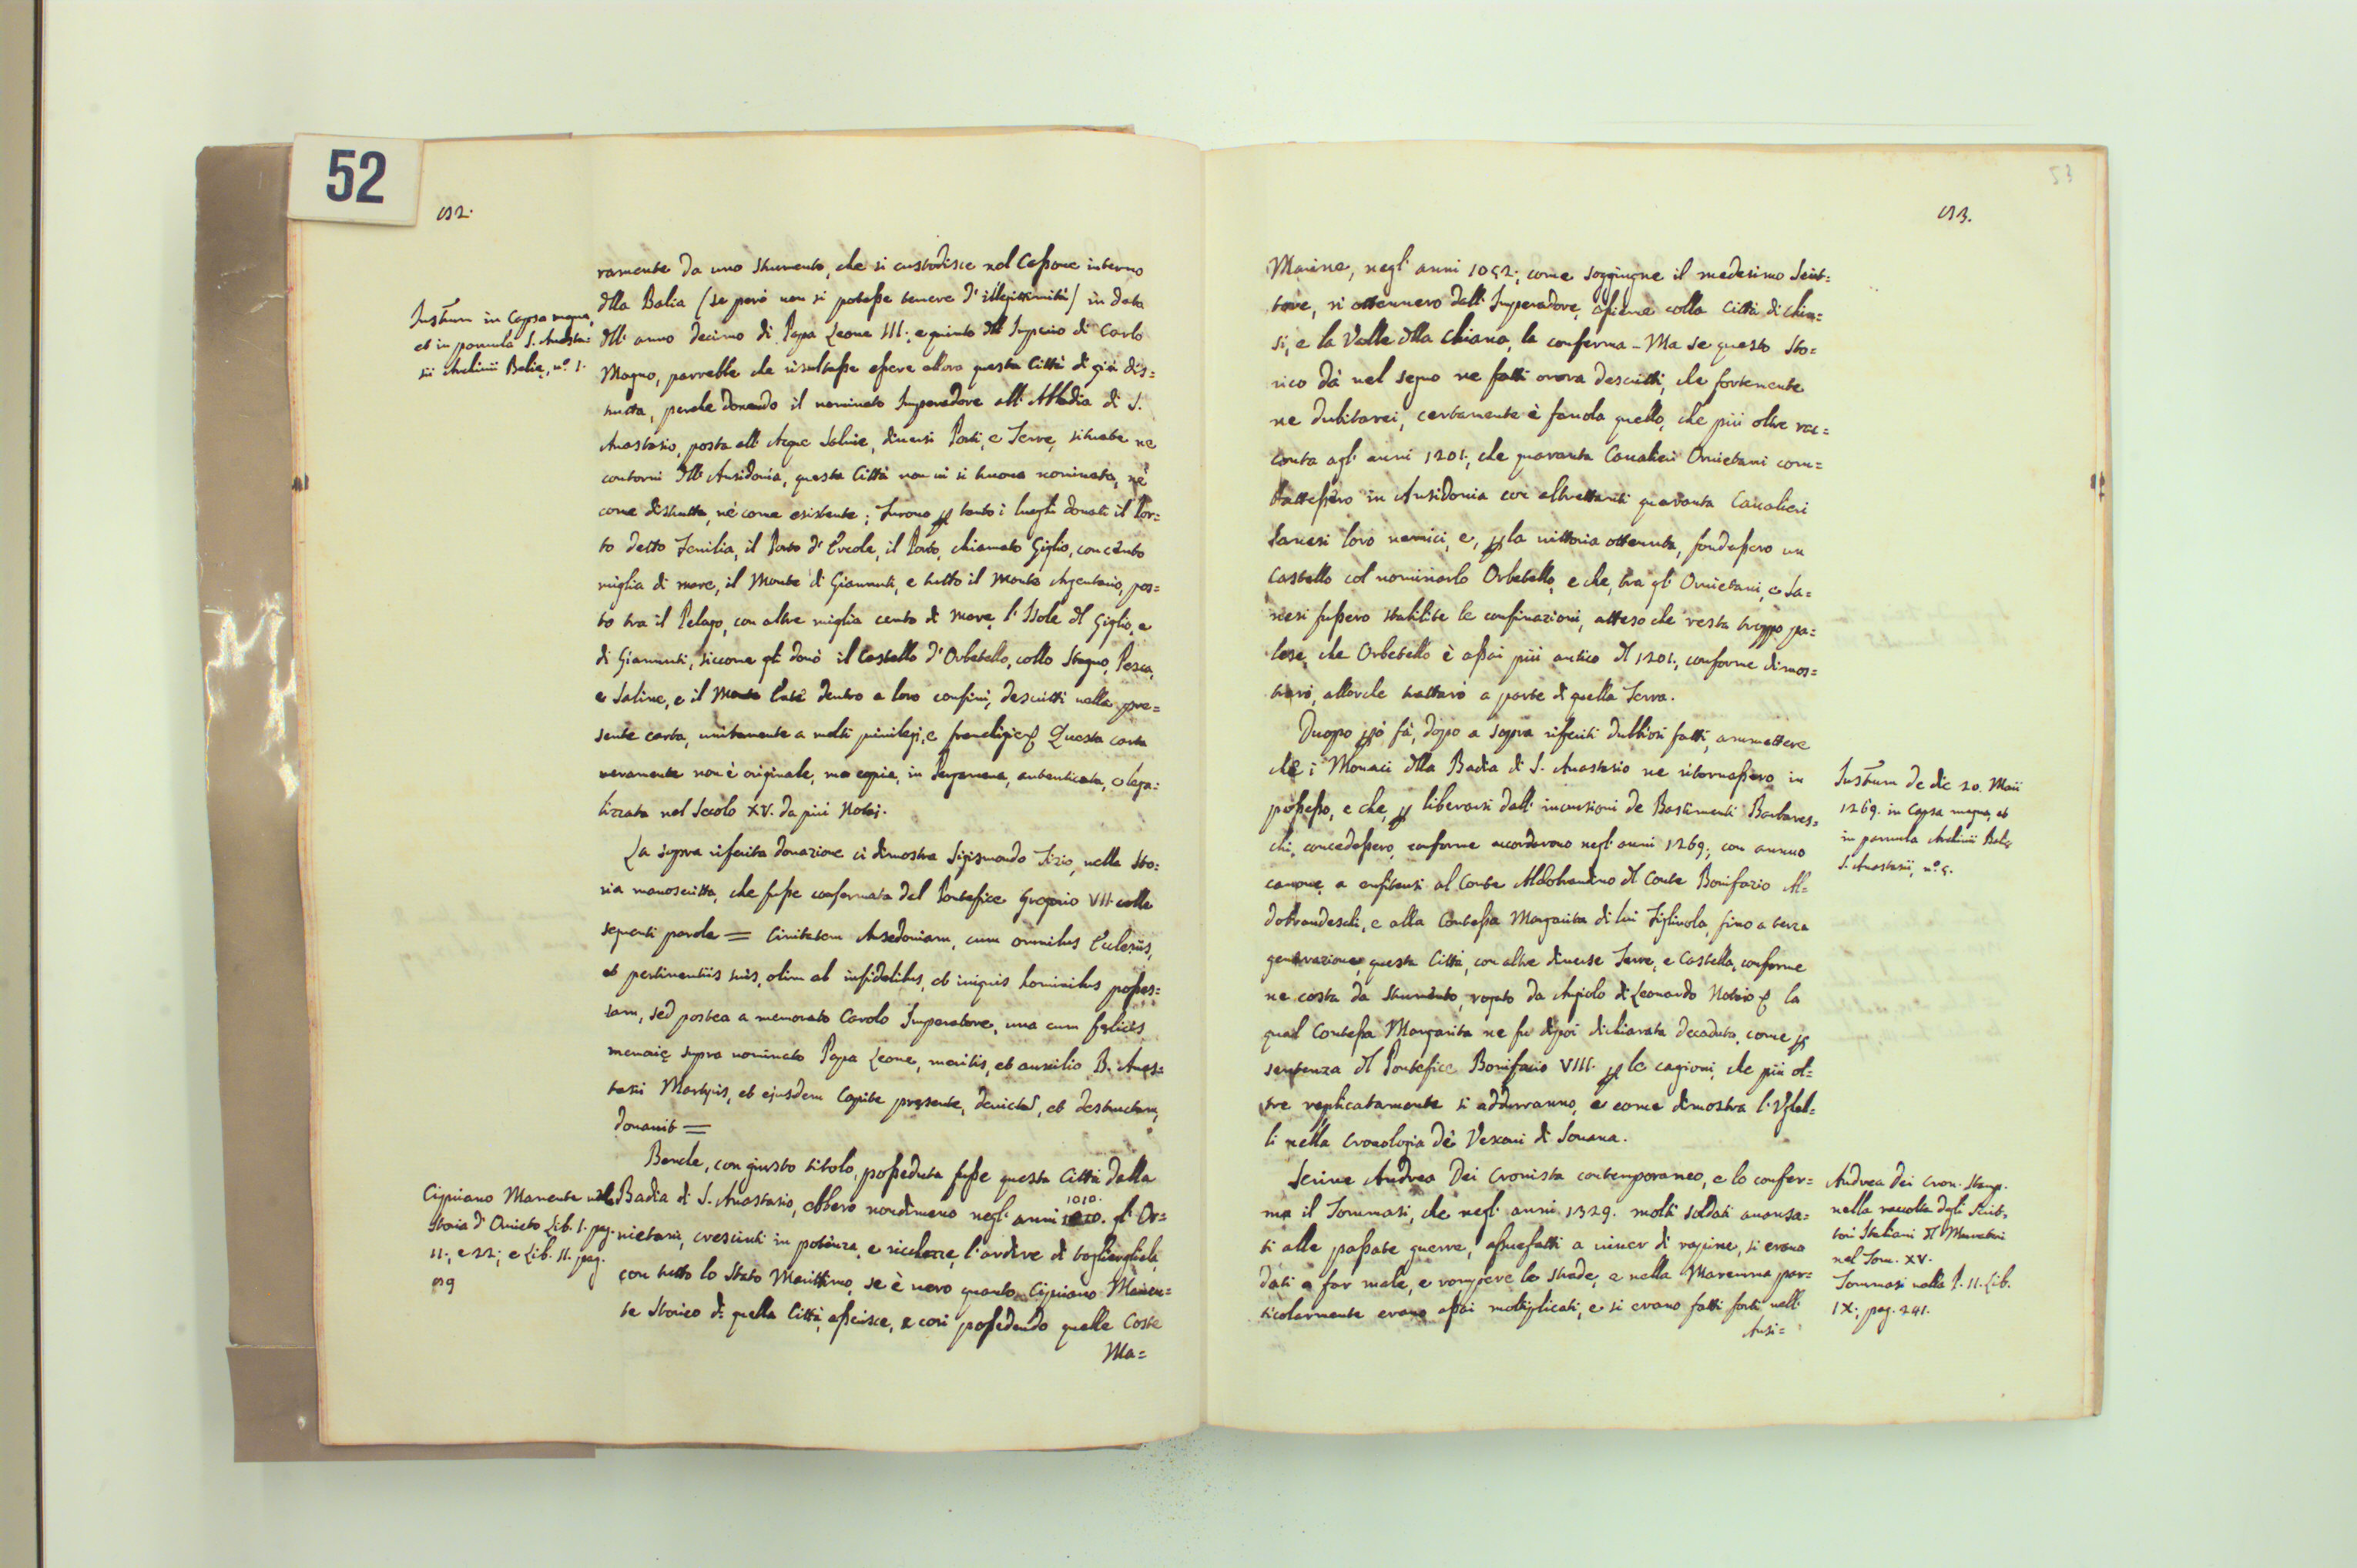 52
52.
ramente da uno Strumento, che si custodisce nel Cassone interno
Instrum in Capsa magna,
et in parvula S. Anasta=
sii Archivii Balię, n.º 1.
dlla Balia (se però non si potesse temere d'illegittimità) in data
dll' anno decimo di Papa Leone III. e quinto dll' Imperio di Carlo
Magno, parrebbe che risultasse essere allora questa Città di già dis=
trutta, perche donando il nominato Imperadore all' Abbadia di S.
Anastasio, posta all' Acque Salvie, diversi Porti, e Terre, situate ne
contorni dll' Ansidonia, questa Città non vi si truova nominata, nè
come distrutta, nè come esistente; furono p tanto i luoghi donati il Por=
to detto Fenilia, il Porto d'Ercole, il Porto, chiamato Giglio, con cento
miglia di mare, il Monte di Giannuti, e tutto il Monte Argentario, pos=
to tra il Pelago, con altre miglia cento di mare, l'Isole dl Giglio, e
di Giannuti, siccome gli donò il Castello d'Orbetello, collo Stagno, Pesca,
e Saline, e il dentro a loro confini, descritti nella pre=
sente carta, unitamente a molti privilegj, e franchigie Questa carta
veramente non è originale, ma copia, in Pergamena, autenticata, e lega=
lizzata nel Secolo XV. da più Notaj.
La sopra riferita donazione ci dimostra Sigismondo Tizio, nella Sto=
ria manoscritta, che fusse confermata dal Pontefice Gregorio VII. colle
seguenti parole = Civitatem Ansedoniam, cum omnibus Ecclesiis,
et pertinentiis suis, olim ab infidelibus, et iniquis hominibus posses=
sam, sed postea a memorato Carolo Imperatore, una cum felicis
memorię supra nominato Papa Leone, meritis, et auxilio B. Anas=
tasii Martyris, et ejusdem Capite pręsente, devictā, et destructam,
donavit =
Benche, con giusto titolo, posseduta fusse questa Città dalla
Cipriano Manente nella
Storia d'Orvieto Lib. I. pag.
11., e 22.; e Lib. II. pag.
59
Badia di S. Anastasio, ebbero nondimeno negl' anni 1010. gl' Or=
1010.
vietani, cresciuti in potenza, e ricchezze, l'ardire di toglierglieli,
con tutto lo Stato Marittimo, se è vero quanto Cipriano Manen=
te Storico di quella Città asserisce, e così possedendo quelle Coste
Ma=
53
53.
Marine, negl' anni 1052; come soggiugne il medesimo Scrit=
tore, si ottennero dall' Imperadore, assieme colla Città di Chiu=
si, e la Valle dlla Chiana, la conferma. Ma se questo Sto=
rico dà nel segno ne fatti orora descritti, che fortemente
ne dubitarei, certamente è favola quello, che più oltre rac=
conta agl' anni 1201., che quaranta Cavalieri Orvietani com=
battessero in Ansidonia con altrettanti quaranta Cavalieri
Sanesi loro nemici, e, p la vittoria ottenuta, fondassero un
Castello col nominarlo Orbetello, e che, tra gl' Orvietani, e Sa=
nesi fussero stabilite le confinazioni, atteso che resta troppo pa=
lese, che Orbetello è assai più antico dl 1201., conforme dimos=
trarò, allorche trattarò a parte di quella Terra.
Duopo però fà, dopo a sopra riferiti dubbiosi fatti, ammettere
che i Monaci dlla Badia di S. Anastasio ne ritornassero in
possesso, e che, p liberarsi dall' incursioni de Bastimenti Barbares=
chi, concedessero, conforme accordarono negl' anni 1269., con annuo
canone, a enfiteusi al Conte Aldobrandino dl Conte Bonifazio Al=
dobrandeschi, e alla Contessa Margarita di lui Figliuola, fino a terza
generazione, questa Città, con altre diverse Terre, e Castella, conforme
ne costa da Strumento, rogato da Angiolo di Leonardo Notaio la
qual Contessa Margarita ne fu dipoi dichiarata decaduta, come p
sentenza dl Pontefice Bonifacio VIII. p le cagioni, che più ol=
tre replicatamente si addurranno, e come dimostra l'Ughel=
li nella Cronologia dè Vescovi di Sovana.
Instrum de die 20. Maii
1269. in Capsa magna, et
in parvula Archivii Balię
S. Anastasii, n.º 5.
Scrive Andrea Dei Cronista contemporaneo, e lo confer=
ma il Tommasi, che negl' anni 1329. molti soldati avanza=
ti alle passate guerre, assuefatti a viver di rapine, si erano
dati a far male, e rompere le strade, e nella Maremma par=
ticolarmente erano assai moltiplicati, e si erano fatti forti nell'
Ansi=
Andrea Dei Cron. Stamp.
nella raccolta degli Scrit=
tori Italiani dl Muratori
nel Tom. XV.
Tommasi nella P. II. Lib.
IX., pag. 241.